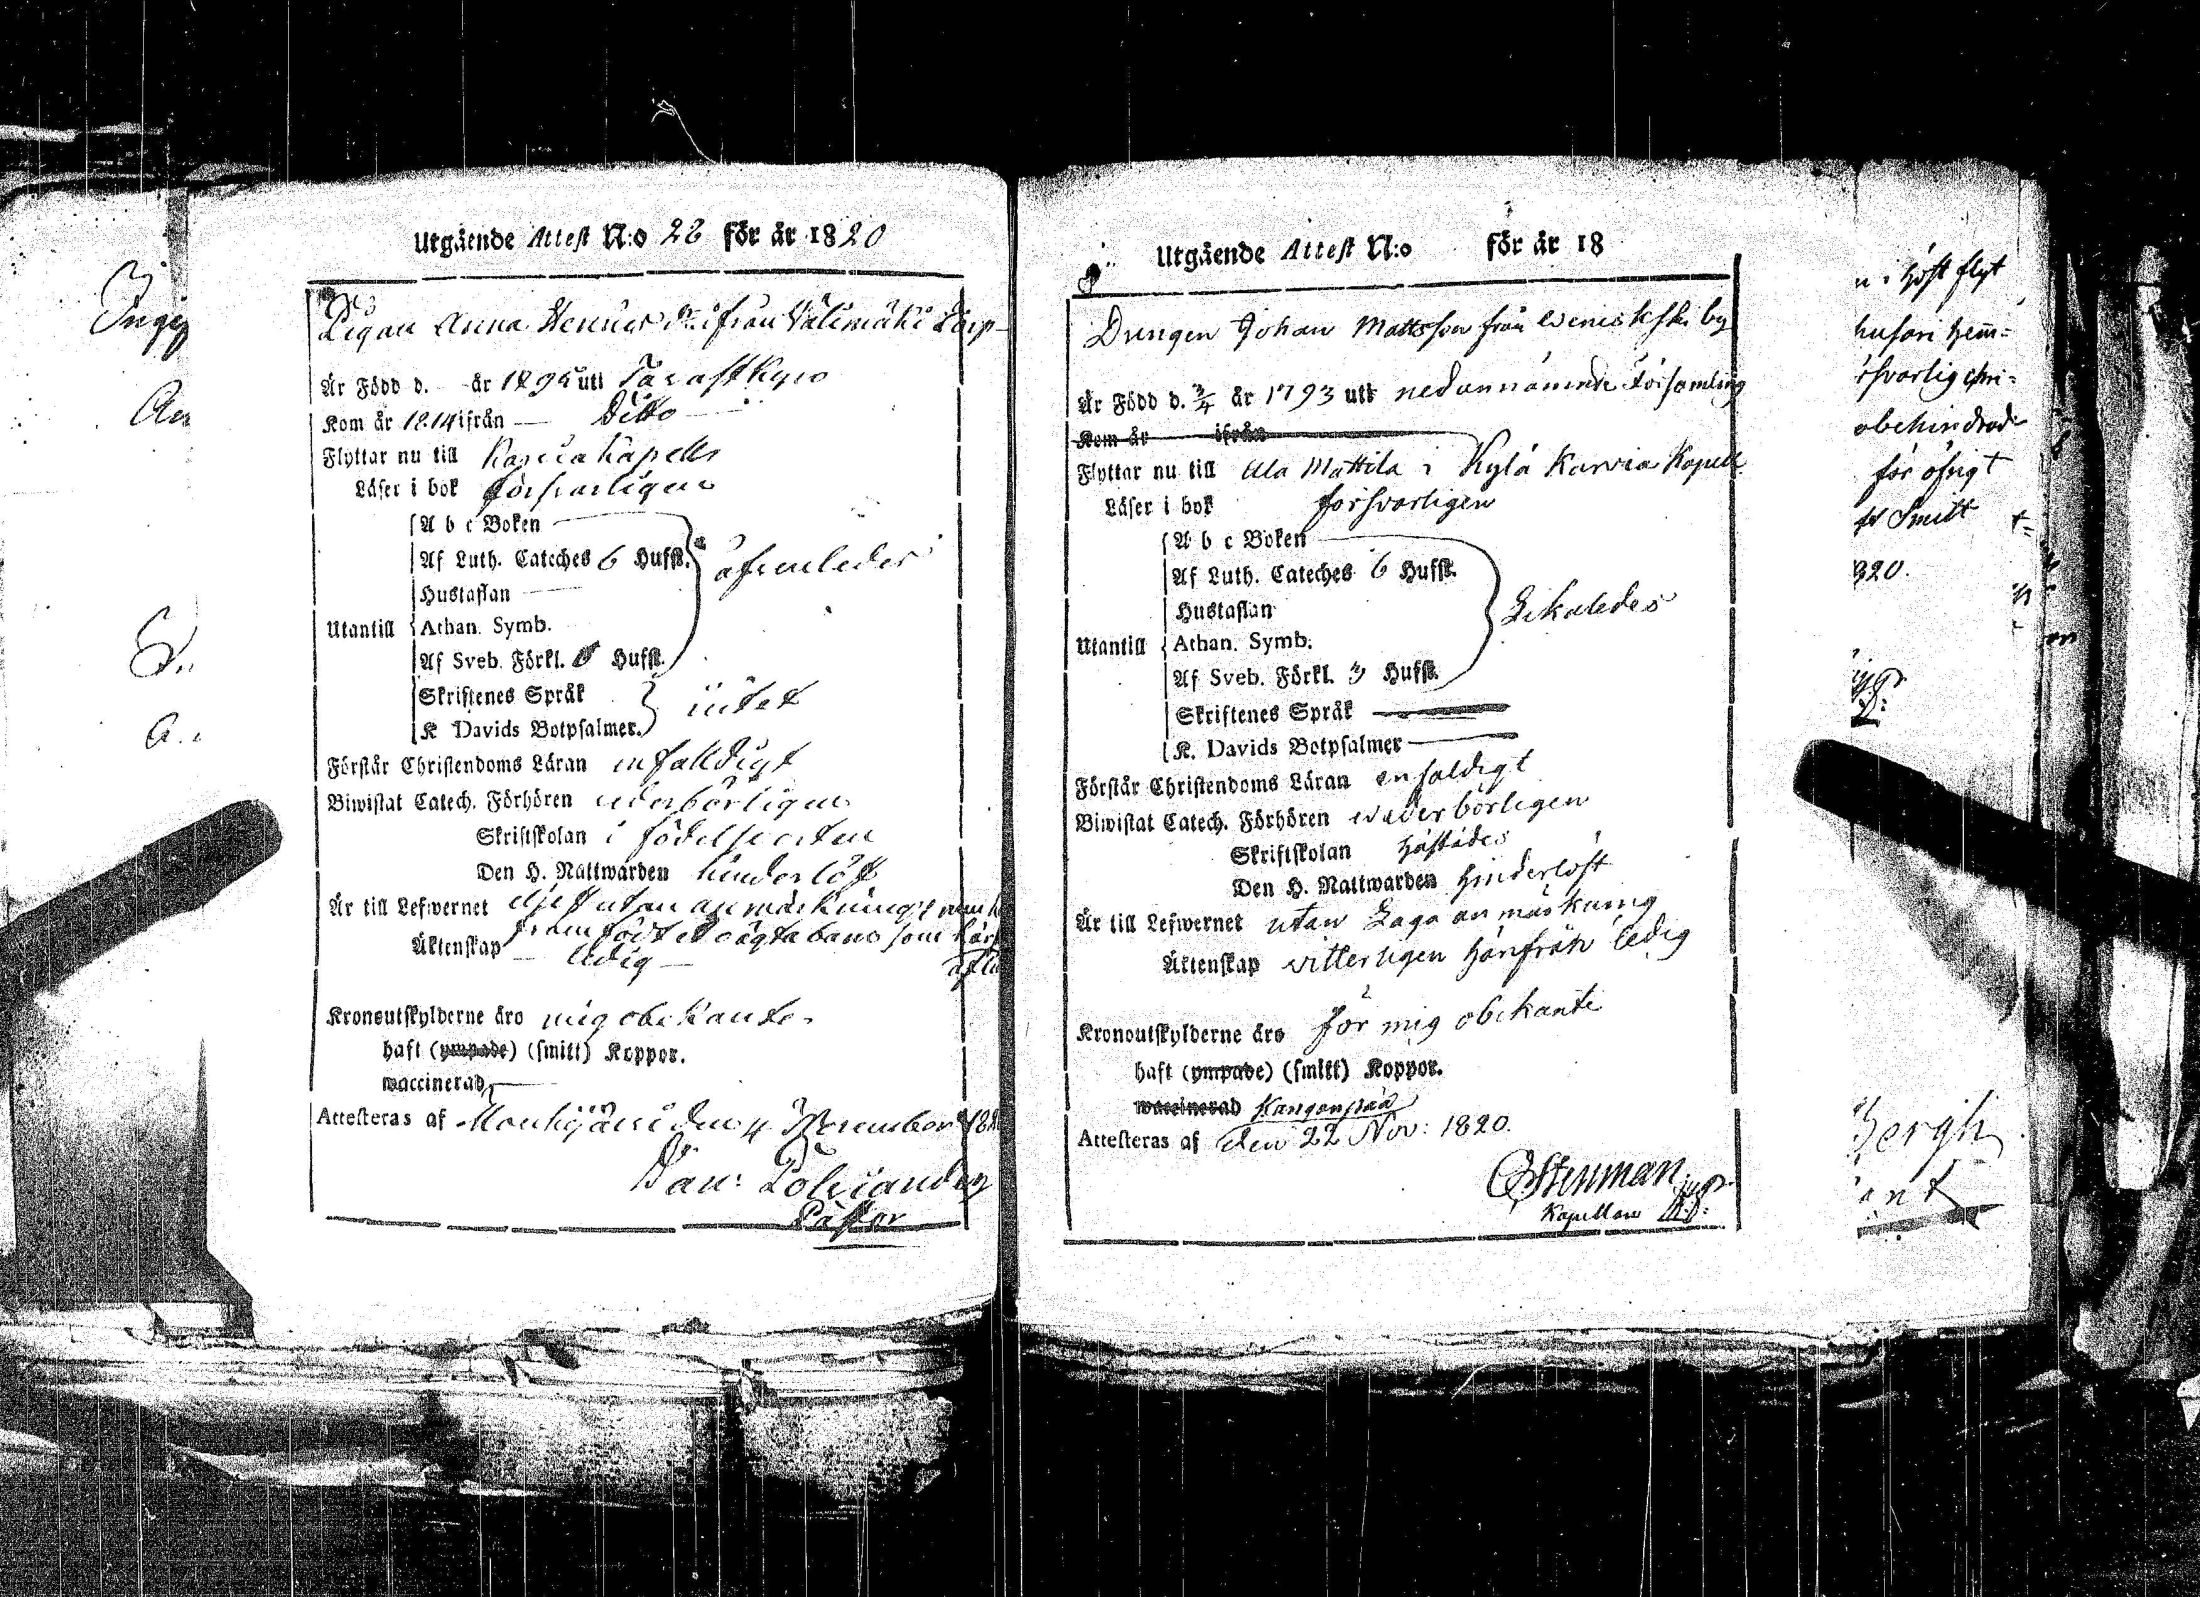 Utgående Attest N:o 22 för år 1820
Pigan Anna Henric dr ifrån Välimäki Torp
Är Född d. — år 1795 uti Tavastkyro
Kom år 1814 ifrån — Ditto —
Flyttar nu till Karvia Kapell
Läser i bok försvarligen
A b c Boken
Af Luth. Cateches 6 Hufst.
äfvenledes
Hustaflan
Utantill
Athan. Symb.
Af Sveb. Förkl. Hufst.
Skriftenes Språk
K Davids Botpsalmer.
intet
Förstår Christendoms Läran enfalldigt
Biwistat Catech. Förhören vederbörligen
Skriftskolan i födelseorten
Den H. Nattwarden hinderlöst
Är till Lefwernet ej utan anmärkning
framfödt et oägta barn som
Äktenskap — ledig —
Kronoutskylderne äro mig obekante
haft (ympade) (smitt) Koppor.
waccinerad
Attesteras af Mouhijärvi den 4 November 182
Dan: Polviander
Pastor
Utgående Attest N:o för år 18
Drängen Johan Mattsson från Weneskoski by
Är Född d. 3/4 år 1793 uti nedannämnde Församling
Kom år ifrån
Flyttar nu till Ala Mattila i Kylä Karvia Kapell
Läser i bok försvarligen
A b c Boken
Af Luth. Cateches 6 Hufst.
Hustaflan
Likaledes
Utantill
Athan. Symb.
Af Sveb. Förkl. 3 Hufst.
Skriftenes Språk
K. Davids Botpsalmer
Förstår Christendoms Läran enfaldigt
Biwistat Catech. Förhören wederbörligen
Skriftskolan härstädes
Den H. Nattwarden Hinderlöst
Är till Lefwernet utan Laga anmärkning
Äktenskap witterligen härifrån ledig
Kronoutskylderne äro för mig obekante
haft (ympade) (smitt) Koppor.
waccinerad Kangonpää
Attesteras af den 22 Nov: 1820.
Stenman
Kapellan
n i höst flyt
husari hem=
obehindrad
för öfrigt
af Smitt
820.
Bergh